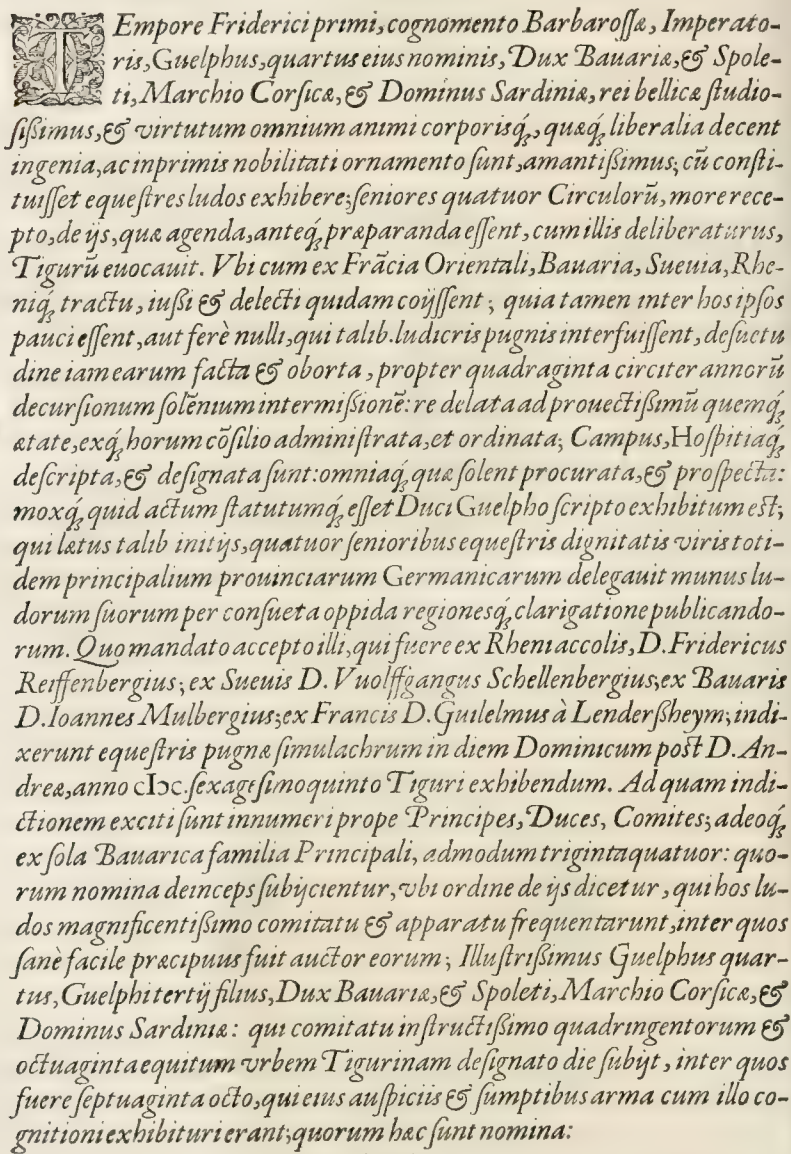 TEmpore Friderici primi, cognomento Barbarossæ, Imperato-
ris, Guelphus, quartus eius nominis, Dux Bauariæ, & Spole-
ti, Marchio Corsicæ, & Dominus Sardiniæ, rei bellicæ studio-
sißimus, & virtutum omnium animi corporisq́;, quæq́; liberalia decent
ingenia, ac inprimis nobilitati ornamento sunt, amantißimus; cū consti-
tuisset equestres ludos exhibere; seniores quatuor Circulorū, more rece-
pto, de ijs, quæ agenda, anteq́; præparanda essent, cum illis deliberaturus,
Tigurū euocauit. Vbi cum ex Frācia Orientali, Bauaria, Sueuia, Rhe-
niq́; tractu, iußi & delecti quidam coijssent; quia tamen inter hos ipsos
pauci essent, aut ferè nulli, qui talib. ludicris pugnis interfuissent, desuetu
dine iam earum facta & oborta, propter quadraginta circiter annorū
decursionum solēnium intermißionē: re delata ad prouectißimū quemq́;
ætate, exq́; horum cōsilio administrata, et ordinata; Campus, Hospitiaq́;
descripta, & designata sunt: omniaq́; quæ solent procurata, & prospecta:
moxq́; quid actum statutumq́; esset Duci Guelpho scripto exhibitum est;
qui lætus talib initijs, quatuor senioribus equestris dignitatis viris toti-
dem principalium prouinciarum Germanicarum delegauit munus lu-
dorum suorum per consueta oppida regionesq́; clarigatione publicando-
rum. Quo mandato accepto illi, qui fuere ex Rheni accolis, D. Fridericus
Reiffenbergius; ex Sueuis D. Vuolffgangus Schellenbergius; ex Bauaris
D. Ioannes Mulbergius; ex Francis D. Guilelmus à Lenderßheym; indi-
xerunt equestris pugnæ simulachrum in diem Dominicum post D. An-
dreæ, anno cIↄc. sexagesimo quinto Tiguri exhibendum. Ad quam indi-
ctionem exciti sunt innumeri prope Principes, Duces, Comites; adeoq́;
ex sola Bauarica familia Principali, admodum triginta quatuor: quo-
rum nomina deinceps subijcientur, vbi ordine de ijs dicetur, qui hos lu-
dos magnificentißimo comitatu & apparatu frequentarunt, inter quos
sanè facile præcipuus fuit auctor eorum; Illustrißimus Guelphus quar-
tus, Guelphi tertij filius, Dux Bauariæ, & Spoleti, Marchio Corsicæ, &
Dominus Sardiniæ: qui comitatu instructißimo quadringentorum &
octuaginta equitum vrbem Tigurinam designato die subijt, inter quos
fuere septuaginta octo, qui eius auspiciis & sumptibus arma cum illo co-
gnitioni exhibituri erant; quorum hæc sunt nomina: